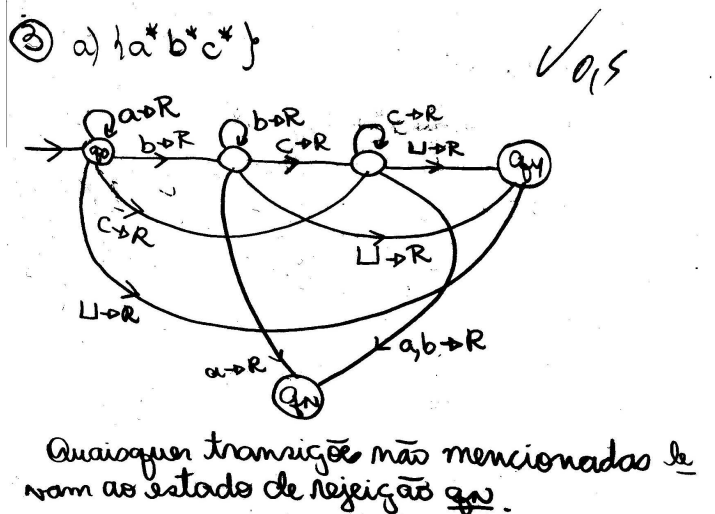 ③ a) {a*b*c*}
✓ 0,5
a→R
b→R
c→R
b→R
c→R
⊔→R
q0
qY
c→R
⊔→R
⊔→R
a→R
a,b→R
qN
Quaisquer transições não mencionadas le
vam ao estado de rejeição qN.